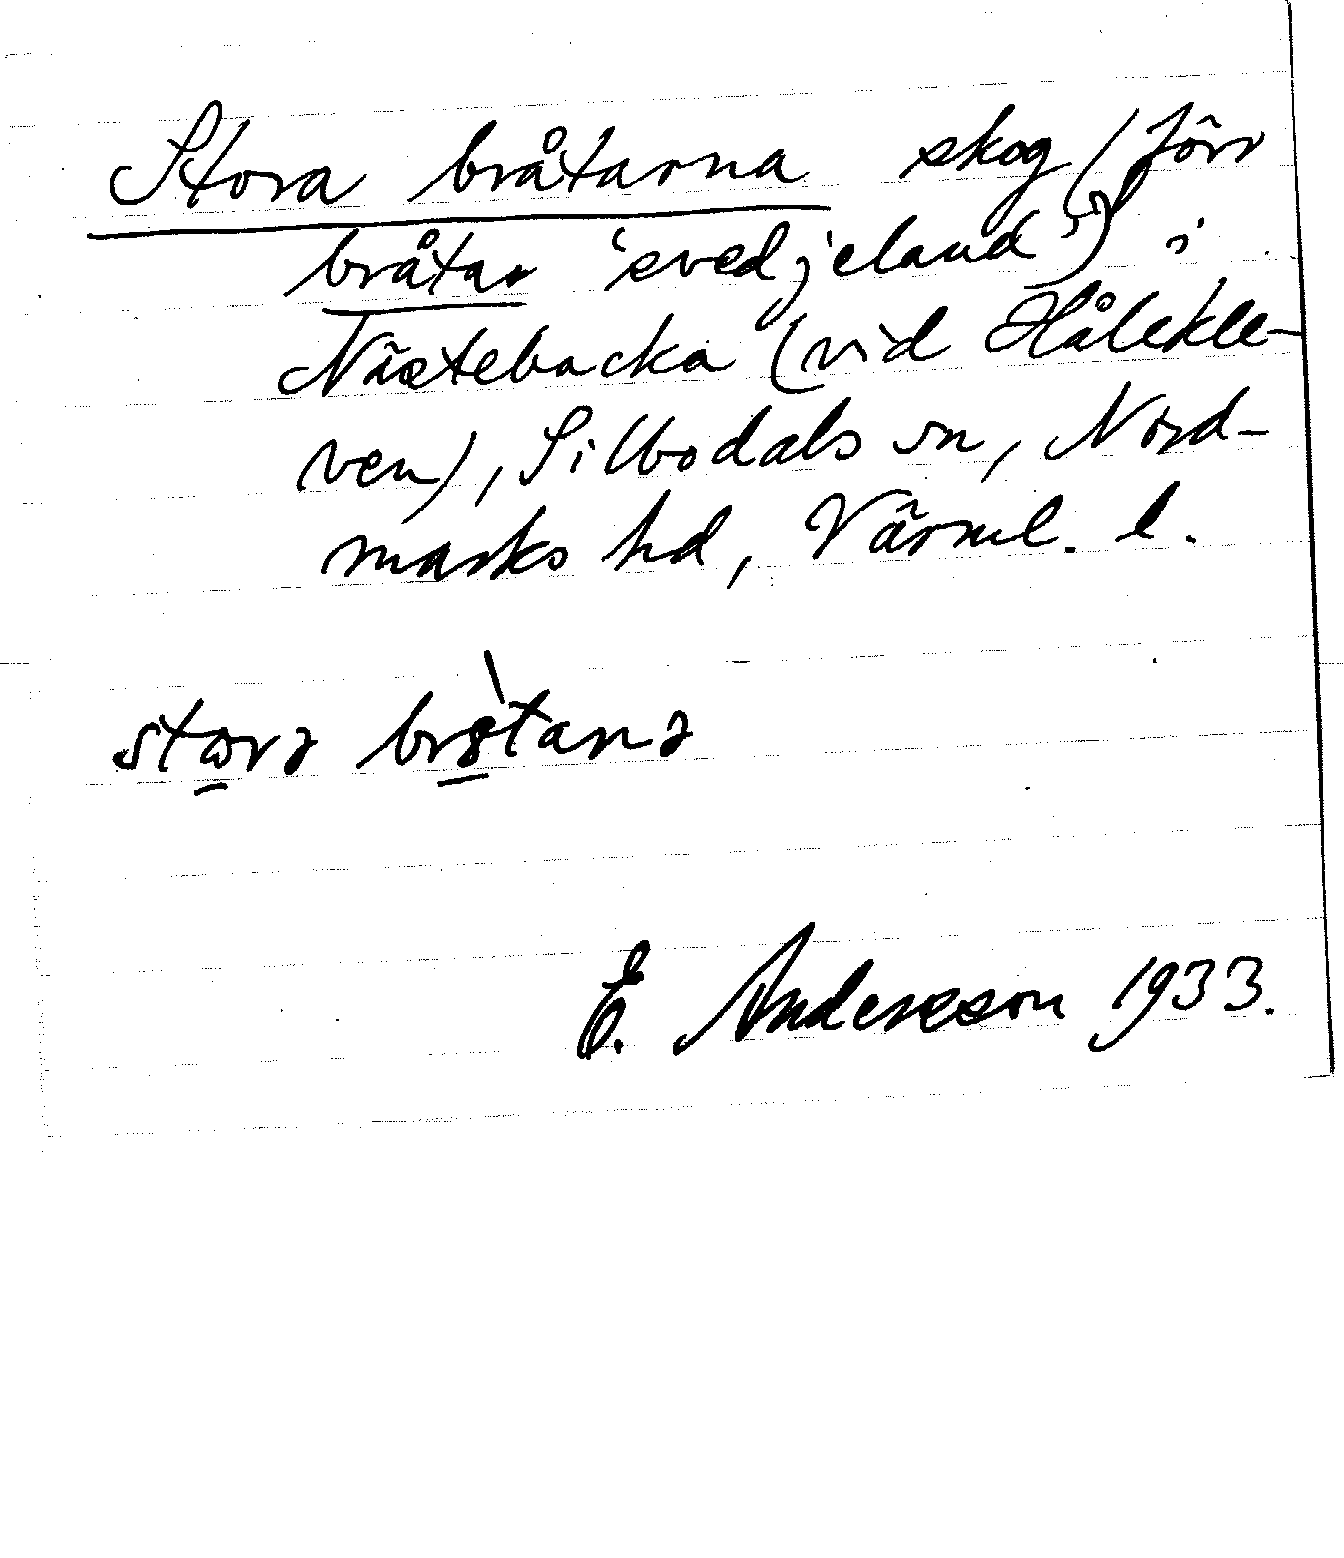 Stora bråtarna skog (förr
bråtar 'svedjeland') i
Nästebacka (vid Hålekle-
ven), Silbodals sn, Nord-
marks hd, Värml. l.
stωrə br8̀tanə
E. Andersson 1933.